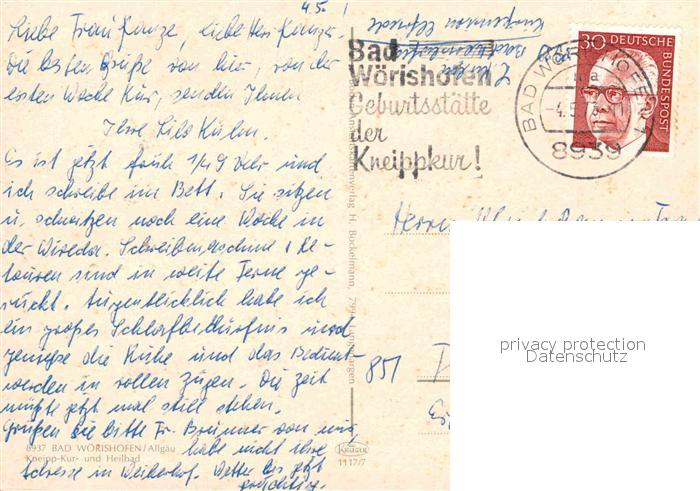 4.5.
Liebe Frau Kanze, liebe Herr Kanze.
Die besten Grüße von hier, von der
ersten Woche Kur, senden Ihnen
Ihre Lilo Kühn.
Es ist jetzt früh 1/49 Uhr und
ich schreibe im Bett. Sie sitzen
u. schwitzen noch eine Woche in
der Schreibmaschine &
sind in weite Ferne ge-
rückt. Augenblicklich habe ich
ein großes Schlafbedürfnis und
genieße die Ruhe und das Bedient-
werden in vollen Zügen. Die Zeit
müßte jetzt mal still stehen.
Grüßen Sie bitte Fr. Brünner von mir,
habe nicht ihre
Adresse in Weiherhof. Wetter bis jetzt
prächtig.
8937 BAD WÖRISHOFEN/Allgäu
Kneipp-Kur- und Heilbad
KRÜGER
1117/7
Ansichtskartenverlag H. Bockelmann, 7991
Bad
Wörishofen
Geburtsstätte
der
Kneippkur!
BAD WÖRISHOFEN 1
ma
-4.5.
8939
30 DEUTSCHE
BUNDESPOST
Herrn
851
privacy protection
Datenschutz